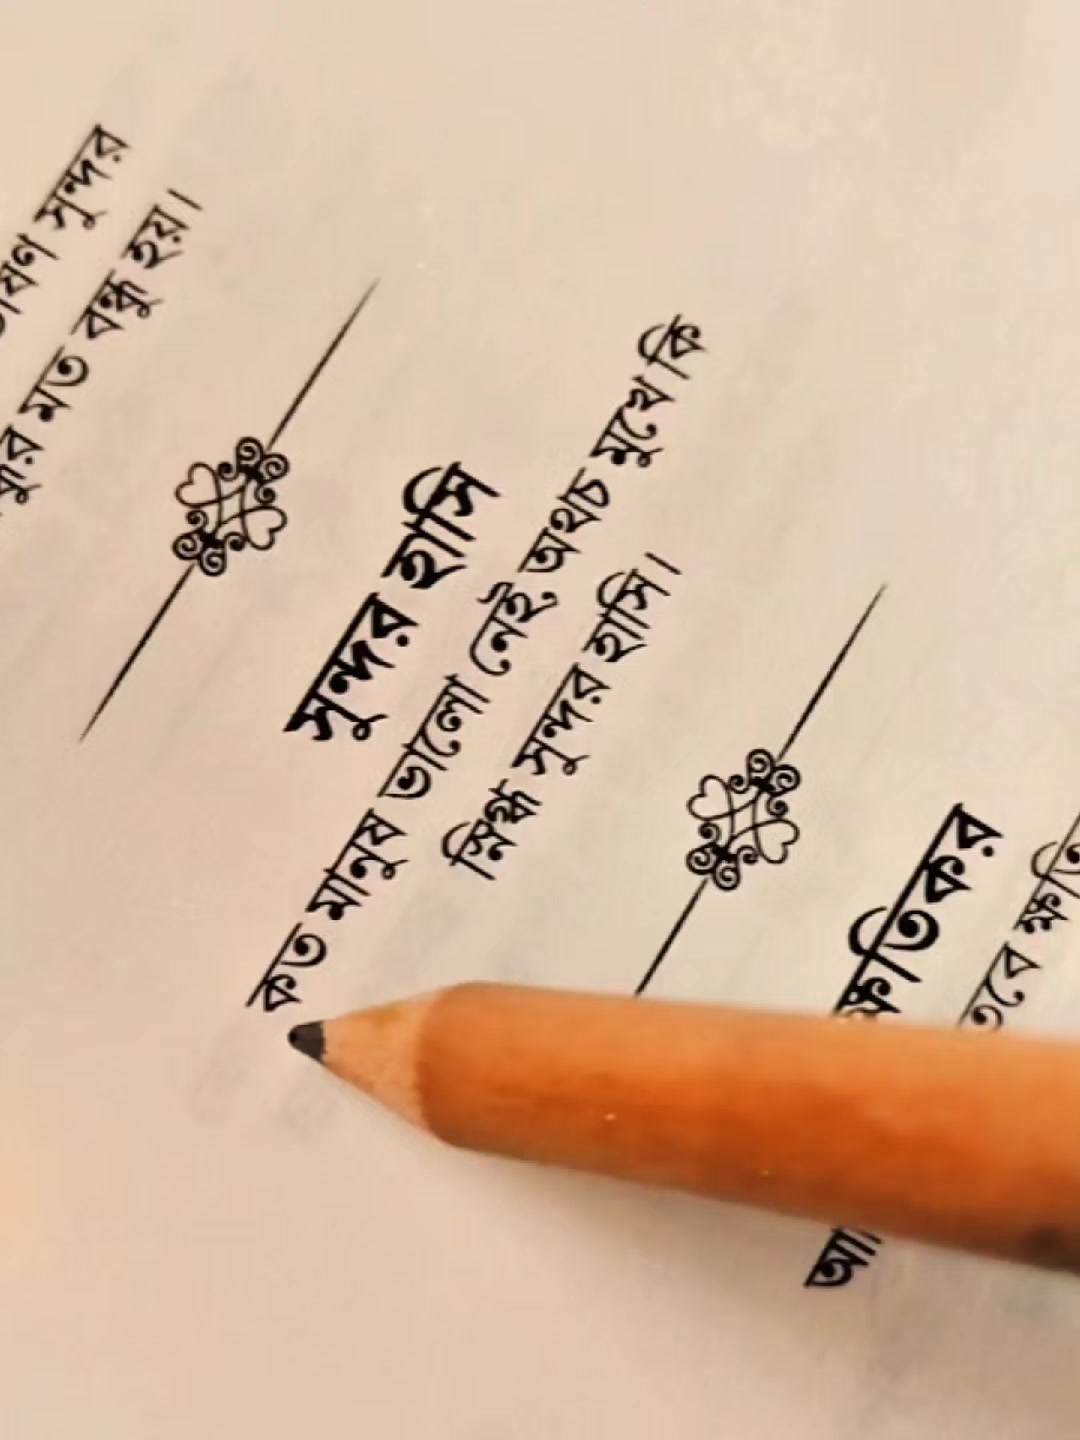 সুন্দর
মত বন্ধু হয়।
সুন্দর হাসি
কত মানুষ ভালো নেই, অথচ মুখে কি
স্নিগ্ধ সুন্দর হাসি।
ক্ষতিকর